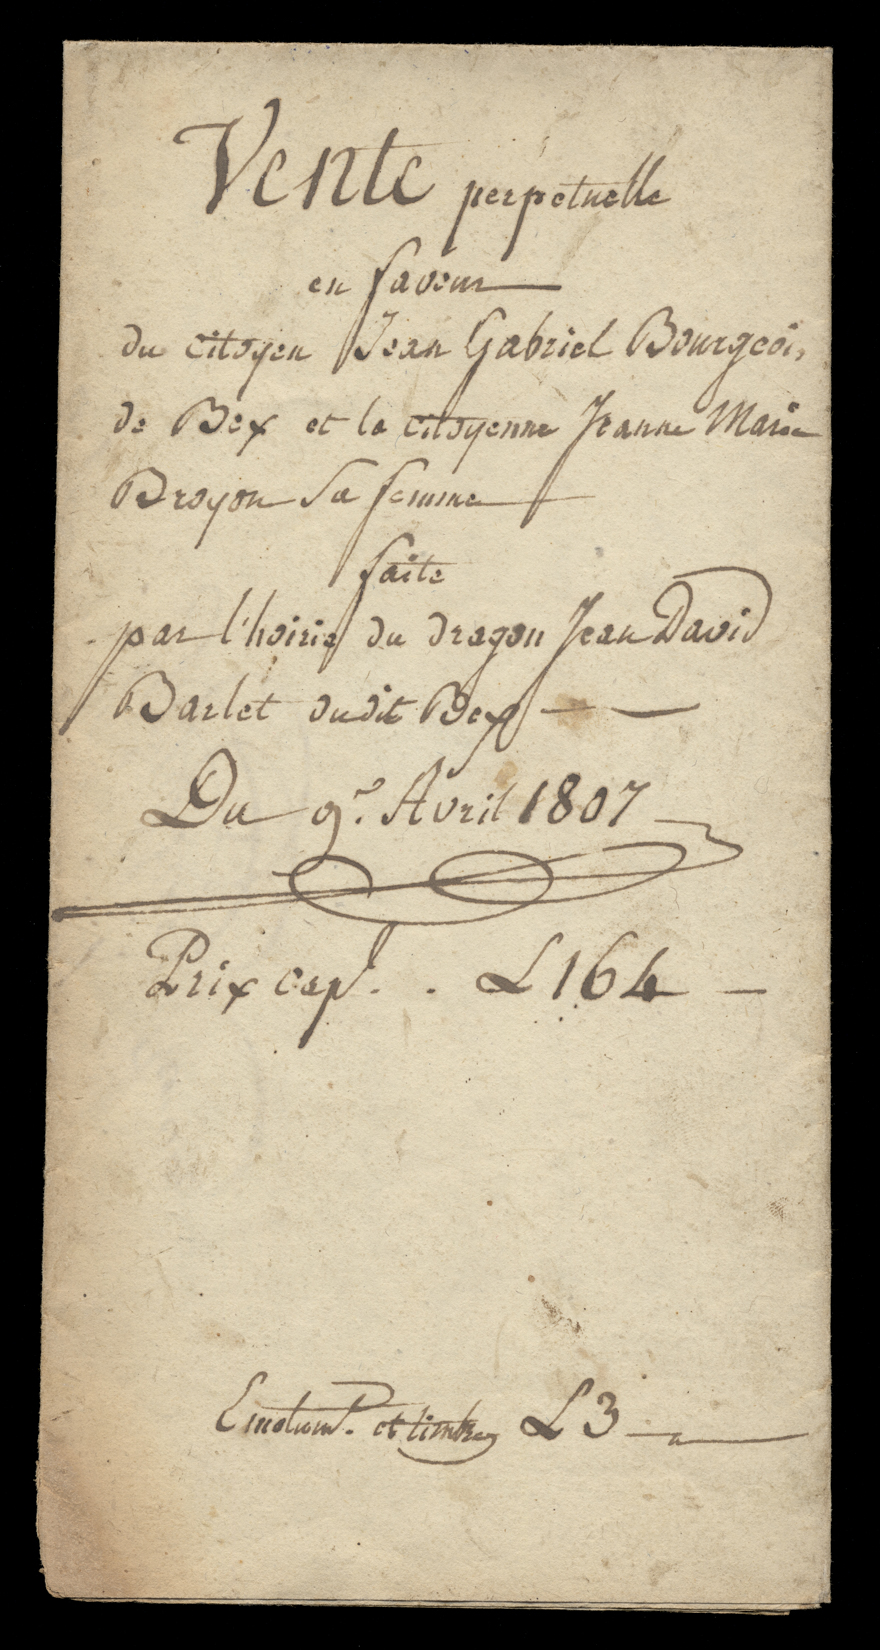 Vente perpetuelle
en faveur
du citoyen Jean Gabriel Bourgeois
de Bex et la citoyenne Jeanne Marie
Broyon sa femme
faite
par l'hoirie du dragon Jean David
Barlet dudit Bex — —
Du 9.e Avril 1807
Prix cap.l . . L 164 —
Emolum.t et timbre L 3 —